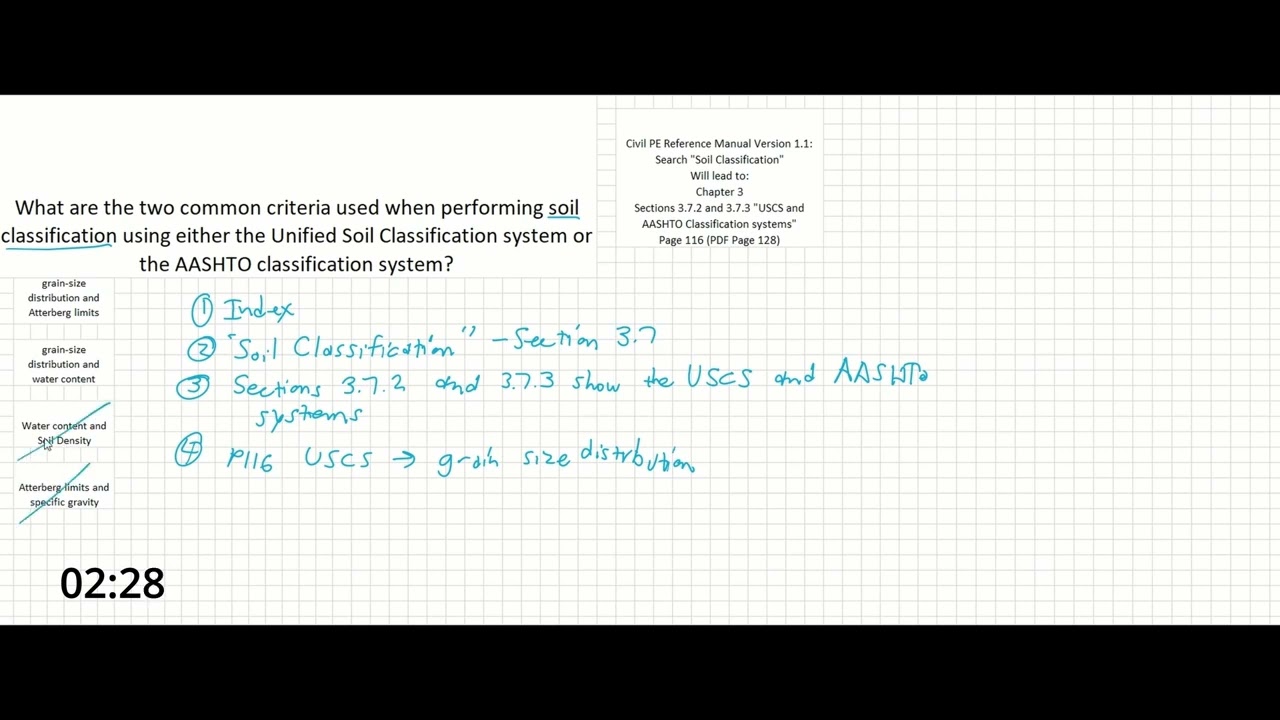 Civil PE Reference Manual Version 1.1:
Search "Soil Classification"
Will lead to:
Chapter 3
Sections 3.7.2 and 3.7.3 "USCS and
AASHTO Classification systems"
Page 116 (PDF Page 128)
What are the two common criteria used when performing soil
classification using either the Unified Soil Classification system or
the AASHTO classification system?
grain-size
distribution and
Atterberg limits
grain-size
distribution and
water content
Water content and
Soil Density
Atterberg limits and
specific gravity
① Index
② "Soil Classification" - Section 3.7
③ Sections 3.7.2 and 3.7.3 show the USCS and AASHTO
systems
④ P116 USCS → grain size distribution
02:28